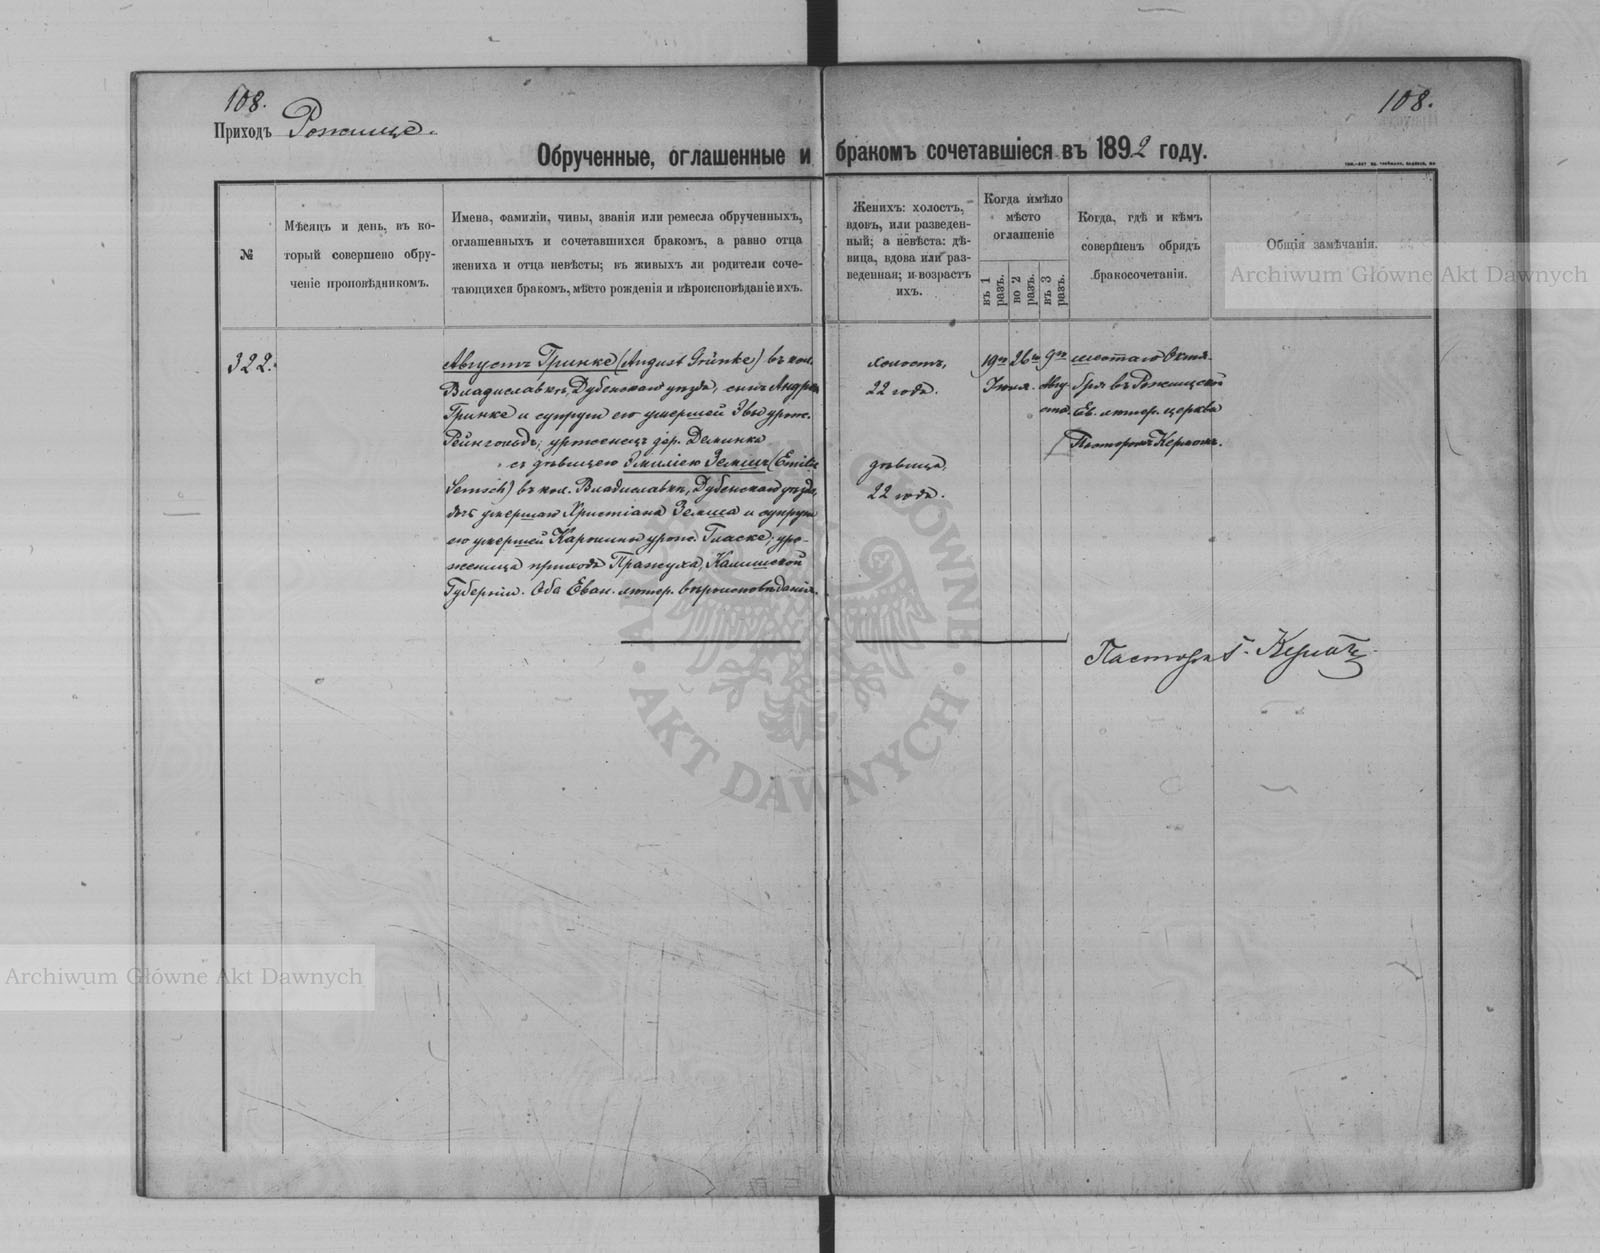 108.
Приходъ Рожище.
108.
Обрученные, оглашенные и бракомъ сочетавшіеся въ 1892 году.
№
Мѣсяцъ и день, въ ко-
торый совершено обру-
ченіе проповѣдникомъ.
Имена, фамиліи, чины, званія или ремесла обрученныхъ,
оглашенныхъ и сочетавшихся бракомъ, а равно отца
жениха и отца невѣсты; въ живыхъ ли родители соче-
тающихся бракомъ, мѣсто рожденія и вѣроисповѣданіе ихъ.
Женихъ: холостъ,
вдовъ, или разведен-
ный; а невѣста: дѣ-
вица, вдова или раз-
веденная; и возрастъ
ихъ.
Когда имѣло
мѣсто
оглашеніе
въ 1
разъ.
во 2
разъ.
въ 3
разъ.
Когда, гдѣ и кѣмъ
совершенъ обрядъ
бракосочетанія.
Общія замѣчанія.
322.
Августъ Гринке (August Grünke) въ кол.
Владиславкѣ, Дубенскаго уѣзда, сынъ Андрея
Гринке и супруги его умершей Эвы урож.
Рейнгольдъ; уроженецъ дер. Деминка
съ дѣвицею Эмиліею Земшъ (Emilie
Semsch) въ кол. Владиславкѣ, Дубенскаго уѣзда,
дочь умершаго Христіана Земша и супруги
его умершей Каролины урож. Гляске; уро-
женица прихода Пражуха, Калишской
Губерніи. Оба Еван. лютер. вѣроисповѣданія.
холостъ,
22 года.
дѣвица,
22 года.
19го 26го
Іюля.
9го
Авгу-
ста.
шестаго Октя-
бря въ Рожищской
Ев. лютер. церкви
Пасторомъ Керномъ.
Пасторъ Кернъ
Archiwum Główne Akt Dawnych
Archiwum Główne Akt Dawnych
ARCHIWUM GŁÓWNE · AKT DAWNYCH ·